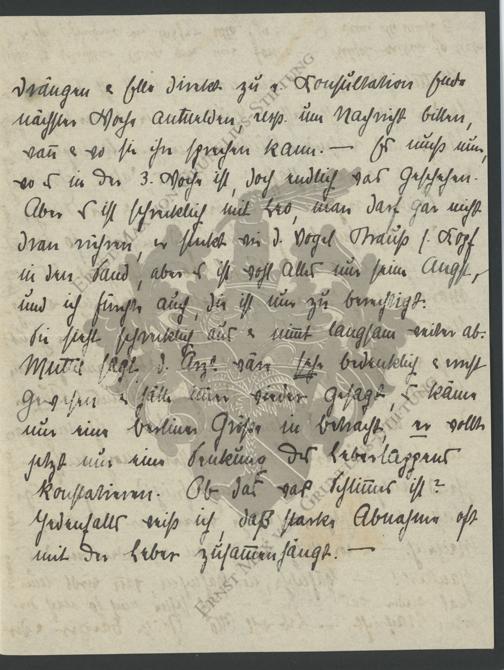 drängen & Elle direkt zu e. Konsultation Ende
nächster Woche anmelden, resp. um Nachricht bitten,
wann & wo sie ihn sprechen kann. — Es muss nun,
wo es in der 3. Woche ist, doch endlich was geschehen.
Aber es ist schrecklich mit Leo, man darf gar nicht
dran rühren, er steckt wie d. Vogel Strauß s. Kopf
in den Sand, aber es ist wohl Alles nur seine Angst,
und ich fürchte auch, die ist nur zu berechtigt.
Sie sieht schrecklich aus & nimmt langsam weiter ab.
Mutti sagt, d. Arzt wäre sehr bedenklich & ernst
gewesen & hätte immer wieder gesagt, es käme
nur eine Berliner Größe in betracht, er wollte
jetzt nur eine Senkung des Leberlappens
konstatieren. Ob das was Schlimmes ist?
Jedenfalls weiß ich, daß starke Abnahme oft
mit der Leber zusammenhängt. —
ERNST MAX VON GRUNELIUS-STIFTUNG
ERNST MAX VON GRUNELIUS-STIFTUNG